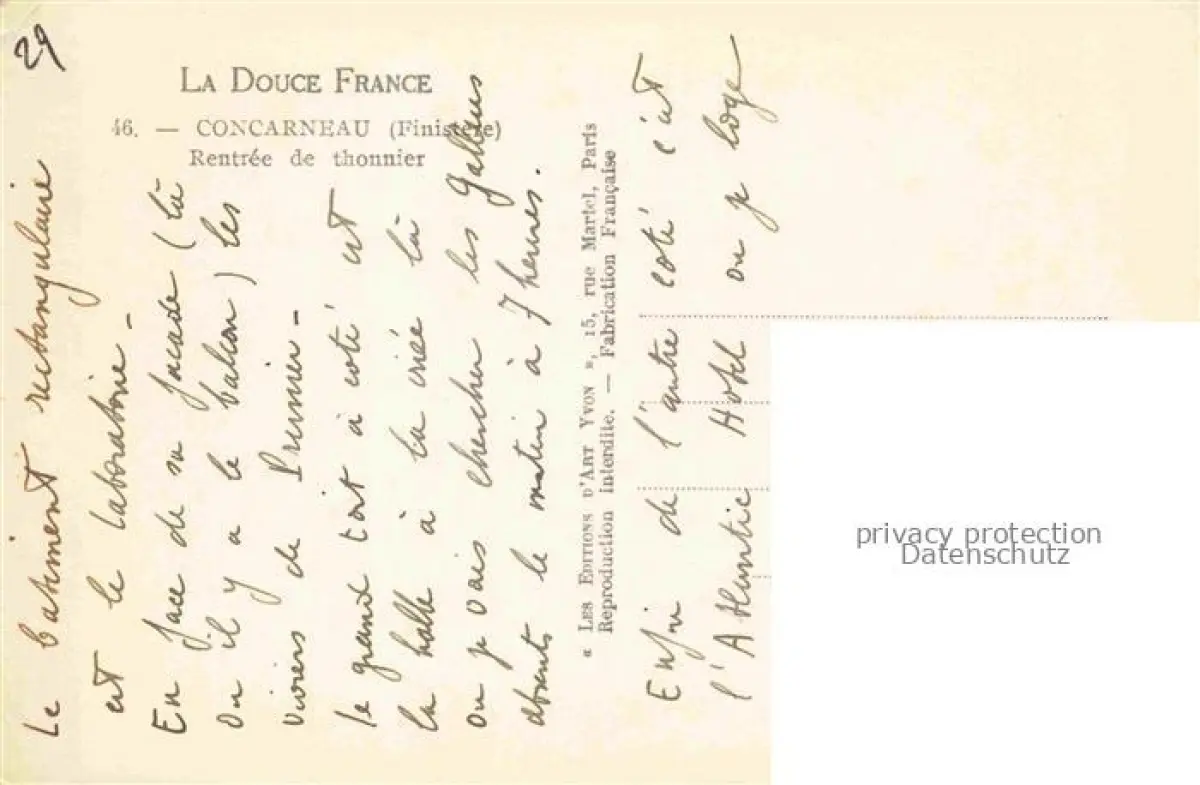 29
LA DOUCE FRANCE
46. — CONCARNEAU (Finistère)
Rentrée de thonnier
Le batiment rectangulaire
est le laboratoire -
En face de sa facade (là
ou il y a le balcon) les
viviers de Prunier -
le grand toit à coté est
la halle à la criée là
ou je vais chercher les
absents le matin à 7 heures.
« LES EDITIONS D'ART YVON », 15, rue Martel, Paris
Reproduction Interdite. — Fabrication Française
Enfin de l'autre coté c'est
l'Atlantic Hotel ou je loge
privacy protection
Datenschutz